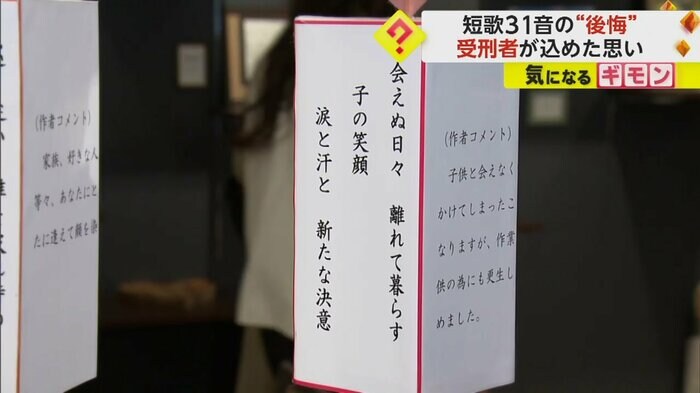 短歌31音の“後悔”
受刑者が込めた思い
気になるギモン
会えぬ日々 離れて暮らす
子の笑顔
涙と汗と 新たな決意
(作者コメント)
子供と会えなく
かけてしまったこ
なりますが、作業
供の為にも更生し
めました。
(作者コメント)
家族、好きな人
等々、あなたにと
たに逢えて顔を